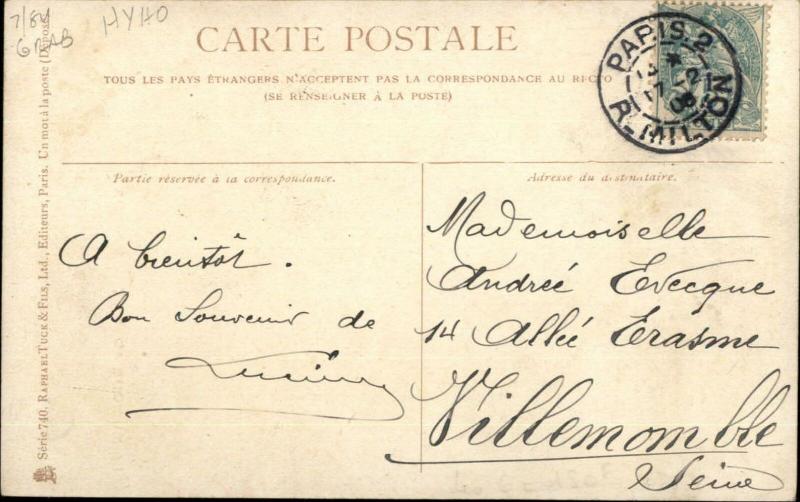 7/84
HYHO
CARTE POSTALE
TOUS LES PAYS ÉTRANGERS N'ACCEPTENT PAS LA CORRESPONDANCE AU RECTO
(SE RENSEIGNER À LA POSTE)
PARIS-2
R. MILTON
Partie réservée à la correspondance.
Adresse du destinataire.
A bientôt.
Bon Souvenir de
Mademoiselle
Andrée Evecque
14 Allée Erasme
Villemomble
Seine
Série 740. RAPHAEL TUCK & FILS, Ltd., Editeurs, Paris. Un mot à la poste (Déposé